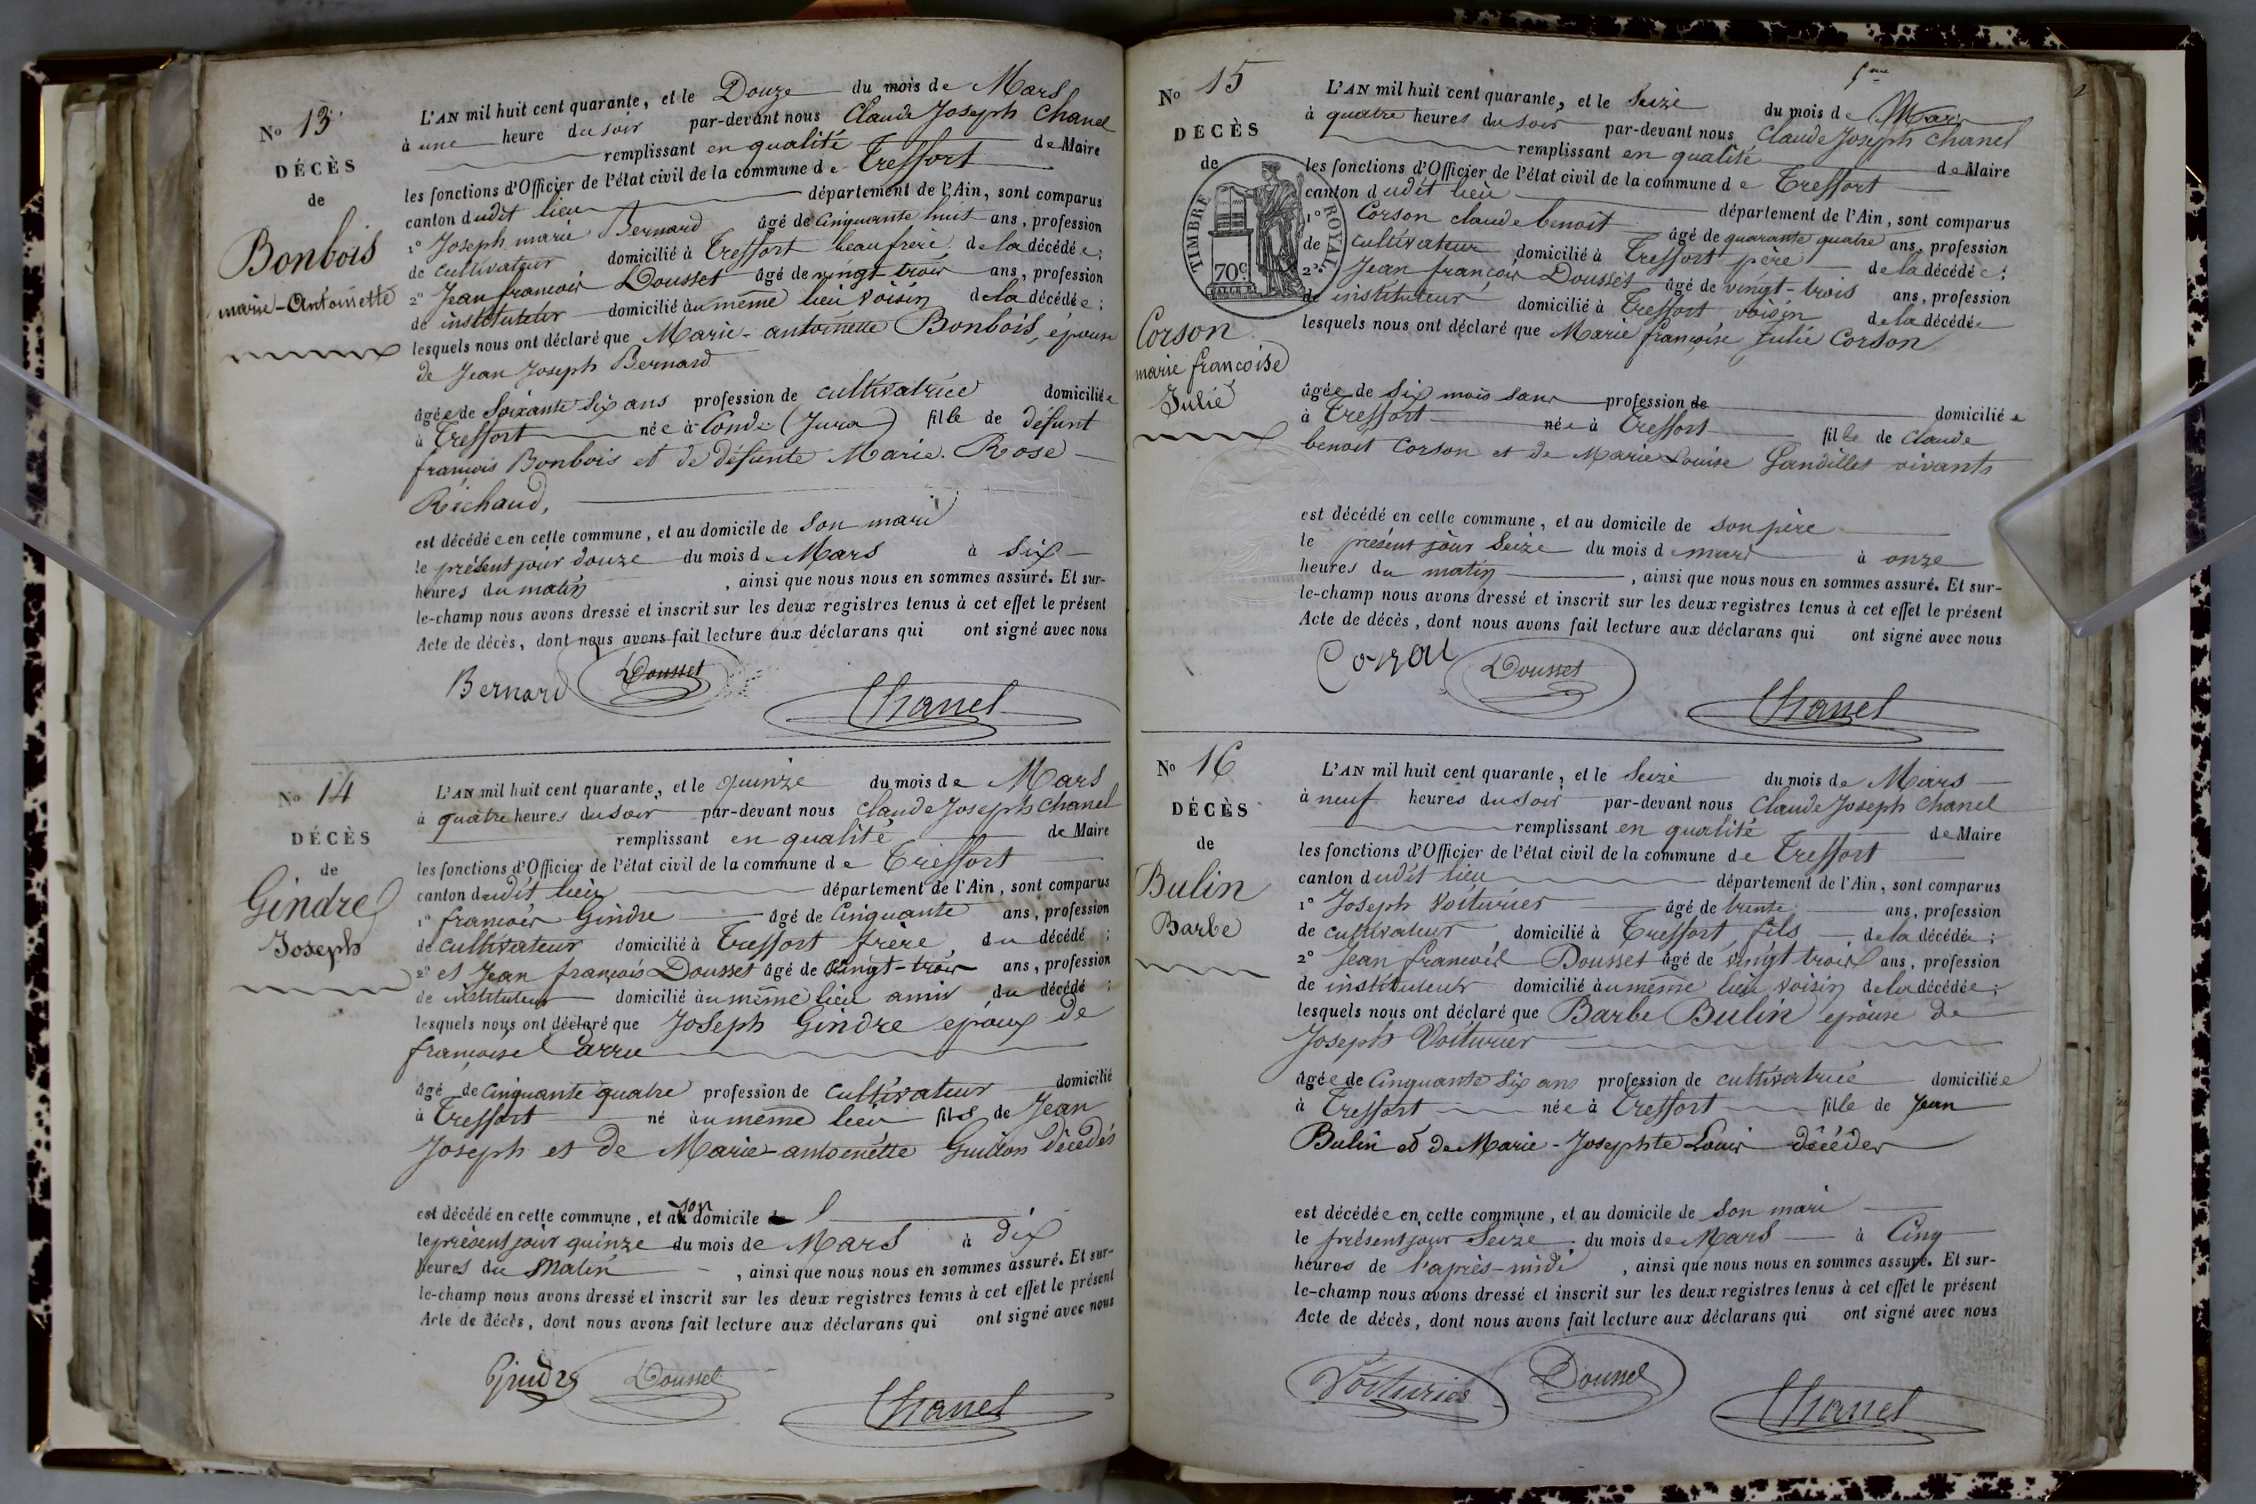 No 13
DÉCÈS
de
Bonbois
marie-Antoinette
L'AN mil huit cent quarante, et le Douze du mois de Mars
à une heure du soir par-devant nous Claude Joseph Chanel
remplissant en qualité de Maire
les fonctions d'Officier de l'état civil de la commune de Treffort
canton dudit lieu département de l'Ain, sont comparus
1° Joseph marie Bernard âgé de cinquante huit ans, profession
de cultivateur domicilié à Treffort beaufrère de la décédée;
2° Jean françois Dousset âgé de vingt-trois ans, profession
de instituteur domicilié au même lieu voisin de la décédée;
lesquels nous ont déclaré que Marie-antoinette Bonbois, épouse
de Jean Joseph Bernard
âgée de Soixante Six ans profession de cultivatrice domiciliée
à Treffort née à Conde (Jura) fille de défunt
françois Bonbois et de défunte Marie Rose
Richaud,
est décédée en cette commune, et au domicile de son mari
le présent jour douze du mois de Mars à six
heures du matin, ainsi que nous nous en sommes assuré. Et sur-
le-champ nous avons dressé et inscrit sur les deux registres tenus à cet effet le présent
Acte de décès, dont nous avons fait lecture aux déclarans qui ont signé avec nous
Bernard Dousset
Chanel
No 14
DÉCÈS
de
Gindre
Joseph
L'AN mil huit cent quarante, et le quinze du mois de Mars
à quatre heures du soir par-devant nous Claude Joseph Chanel
remplissant en qualité de Maire
les fonctions d'Officier de l'état civil de la commune de Treffort
canton dudit lieu département de l'Ain, sont comparus
1° françois Gindre âgé de Cinquante ans, profession
de cultivateur domicilié à Treffort frère du décédé;
2° et Jean françois Dousset âgé de vingt-trois ans, profession
de instituteur domicilié au même lieu amis du décédé;
lesquels nous ont déclaré que Joseph Gindre epoux de
françoise Carru
âgé de Cinquante quatre profession de Cultivateur domicilié
à Treffort né au même lieu fils de Jean
Joseph et de Marie-antoinette Guidon décédés
est décédé en cette commune, et au son domicile de
le présent jour quinze du mois de Mars à dix
heures du Matin, ainsi que nous nous en sommes assuré. Et sur-
le-champ nous avons dressé et inscrit sur les deux registres tenus à cet effet le présent
Acte de décès, dont nous avons fait lecture aux déclarans qui ont signé avec nous
Gindre Dousset
Chanel
5me
No 15
DÉCÈS
de
TIMBRE ROYAL
70c
Corson
marie françoise
Julie
L'AN mil huit cent quarante, et le Seize du mois de Mars
à quatre heures du soir par-devant nous Claude Joseph Chanel
remplissant en qualité de Maire
les fonctions d'Officier de l'état civil de la commune de Treffort
canton dudit lieu département de l'Ain, sont comparus
1° Corson claude benoit âgé de quarante quatre ans, profession
de cultivateur domicilié à Treffort père de la décédée;
2° Jean françois Dousset âgé de vingt-trois ans, profession
de instituteur domicilié à Treffort voisin de la décédée
lesquels nous ont déclaré que Marie françoise Julie Corson
âgée de Six mois sans profession de domiciliée
à Treffort née à Treffort fille de Claude
benoit Corson et de Marie Louise Gandillet vivants
est décédé en cette commune, et au domicile de son père
le présent jour Seize du mois de mars à onze
heures du matin, ainsi que nous nous en sommes assuré. Et sur-
le-champ nous avons dressé et inscrit sur les deux registres tenus à cet effet le présent
Acte de décès, dont nous avons fait lecture aux déclarans qui ont signé avec nous
Dousset
Chanel
No 16
DÉCÈS
de
Bulin
Barbe
L'AN mil huit cent quarante, et le Seize du mois de Mars
à neuf heures du soir par-devant nous Claude Joseph Chanel
remplissant en qualité de Maire
les fonctions d'Officier de l'état civil de la commune de Treffort
canton dudit lieu département de l'Ain, sont comparus
1° Joseph Voiturier âgé de trente ans, profession
de cultivateur domicilié à Treffort fils de la décédée;
2° Jean françois Dousset âgé de vingt trois ans, profession
de instituteur domicilié au même lieu voisin de la décédée;
lesquels nous ont déclaré que Barbe Bulin épouse de
Joseph Voiturier
âgée de Cinquante Six ans profession de cultivatrice domiciliée
à Treffort née à Treffort fille de Jean
Bulin et de Marie-Josephte Louis décédés
est décédée en cette commune, et au domicile de son mari
le présent jour Seize du mois de Mars à Cinq
heures de l'après-midi, ainsi que nous nous en sommes assuré. Et sur-
le-champ nous avons dressé et inscrit sur les deux registres tenus à cet effet le présent
Acte de décès, dont nous avons fait lecture aux déclarans qui ont signé avec nous
Voiturier Dousset
Chanel